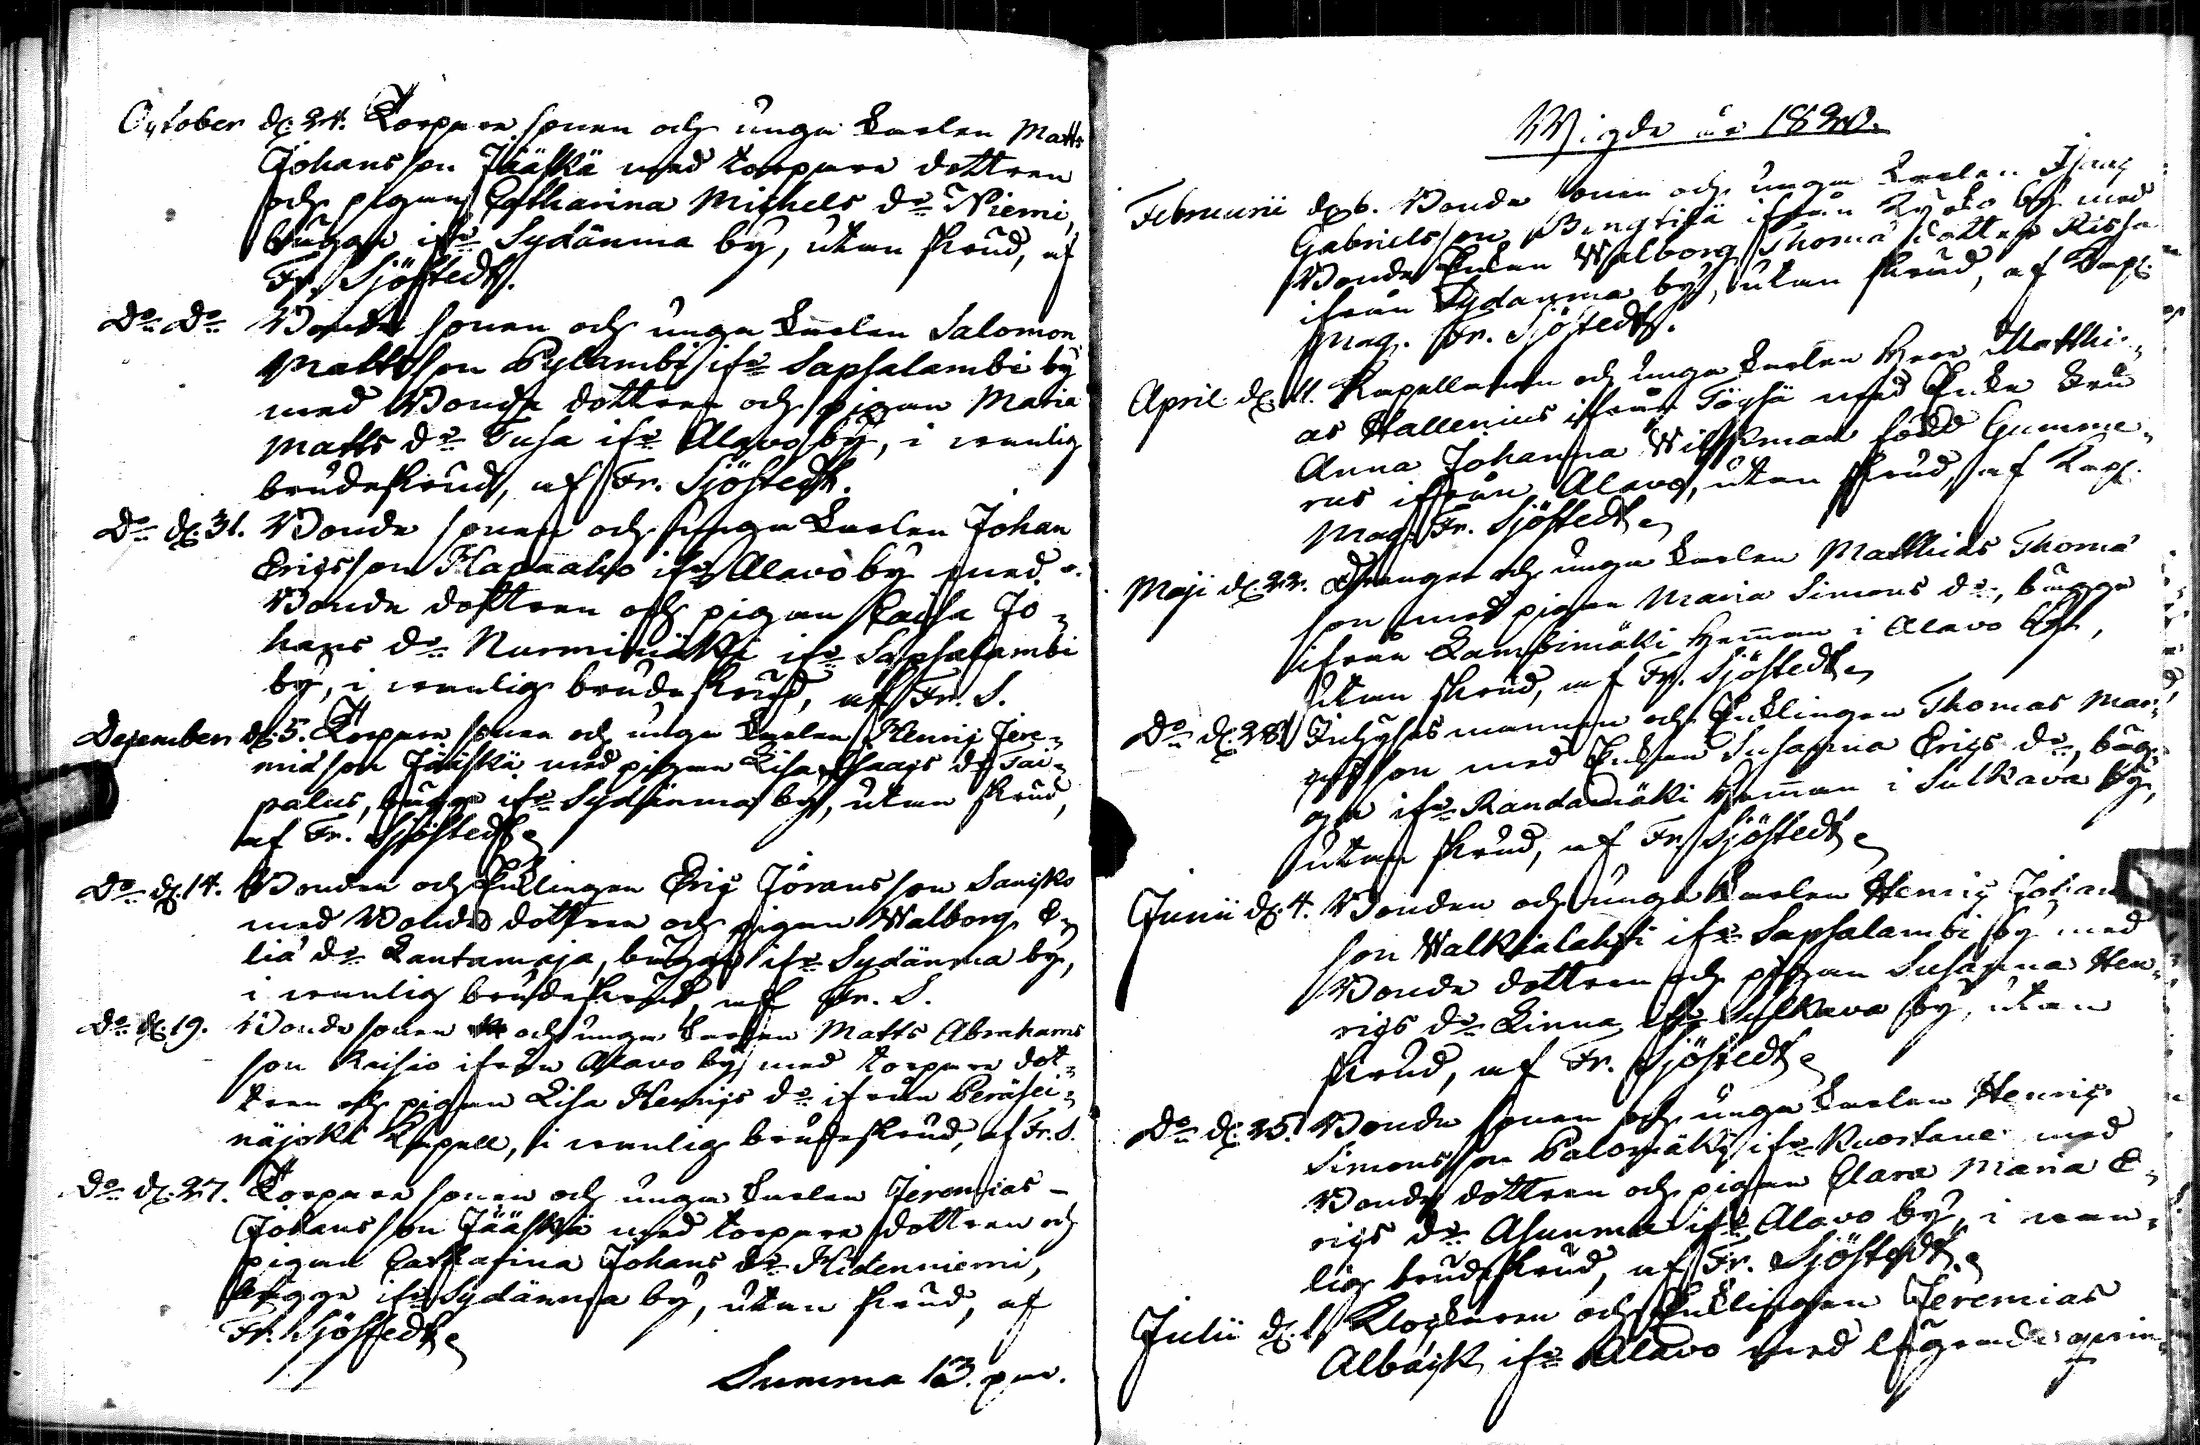 October d. 24. Torpare sonen och unga Karlen Matts
Johansson Jääskä med torpare dottren
och pigan Catharina Michels dr Niemi,
bägge ifr Sydänma by, utan skrud, af
Fr. Sjöstedt.
Do Do Bonde sonen och unga Karlen Salomon
Mattsson Pylambi ifr Sapsalambi by
med Bonde dottren och pigan Maria
Matts dr Tusa ifr Alavo by, i vanlig
brudeskrud, af Fr. Sjöstedt.
Do d. 31. Bonde sonen och unga Karlen Johan
Ericsson Hapaaho ifr Alavo by med
Bonde dottren och pigan Caisa Jo-
hans dr Nurminmäki ifr Sapsalambi
by, i vanlig brudeskrud, af Fr. S.
December d. 5. Torpare sonen och unga Karlen Henric Jere-
miæson Jääskä med pigan Lisa Isaacs dr Tai-
palus, bägge ifr Sydänma by, utan skrud,
af Fr. Sjöstedt
Do d. 14. Bonden och Enklingen Eric Jöransson Saucko
med Bonde dottren och pigan Walborg E-
liæ dr Rantamaja, bägge ifr Sydänma by,
i vanlig brudeskrud af Fr. S.
Do d. 19. Bonde sonen och unga Karlen Matts Abrahams
son Reisio ifrån Alavo by med torpare dot-
tren och pigan Lisa Henrics dr ifrån Peräsei-
näjoki Kapell, i vanlig brudeskrud, af Fr. S.
Do d. 27. Torpare sonen och unga Karlen Jeremias
Johansson Jääskä med torpare dottren och
pigan Catharina Johans dr Hidenniemi,
bägge ifr Sydänma by, utan skrud, af
Fr. Sjöstedt
Summa 13. par.
Wigde år 1820.
Februarii d. 6. Bonde sonen och unga Karlen Isaac
Gabrielsson ifrån by med
Bonde Enkan Walborg Thomæ dotter Rissa
ifrån Sydänma by, utan skrud, af Capl.
Mag. Fr. Sjöstedt.
April d. 11. Kapellanen och unga Karlen Herr Matthi-
as Hallenius ifrån Töysä med Enke Fru
Anna Johanna Wilskman född Gumme-
rus ifrån Alavo, utan skrud, af Kapl.
Mag. Fr. Sjöstedt
Maji d. 22. Drängen och unga Karlen Matthias Thomæ
son med pigan Maria Simons dr, bägge
ifrån Lambimäki Hemman i Alavo by,
utan skrud, af Fr. Sjöstedt
Do d. 28. Inhyses mannen och Enklingen Thomas Mar-
son med Enkan Susanna Erics dr, bäg-
ge ifr Randamäki Hemman i Sulkava by,
utan skrud, af Fr. Sjöstedt
Junii d. 4. Bonden och unga Karlen Henric Johans
son Walkialahti ifr Sapsalambi by med
Bonde dottren och pigan Susanna Hen-
rics dr Linna ifr Sulkava by, utan
skrud, af Fr. Sjöstedt
Do d. 25. Bonde sonen och unga Karlen Henric
Simonsson Palomäki ifr Kuortane med
Bonde dottren och pigan Clara Maria E-
rics dr Asunma ifr Alavo by, i van-
lig brudeskrud, af Fr. Sjöstedt.
Julii d. 1. Klockaren och Enklingen Jeremias
Albäck ifr Alavo med